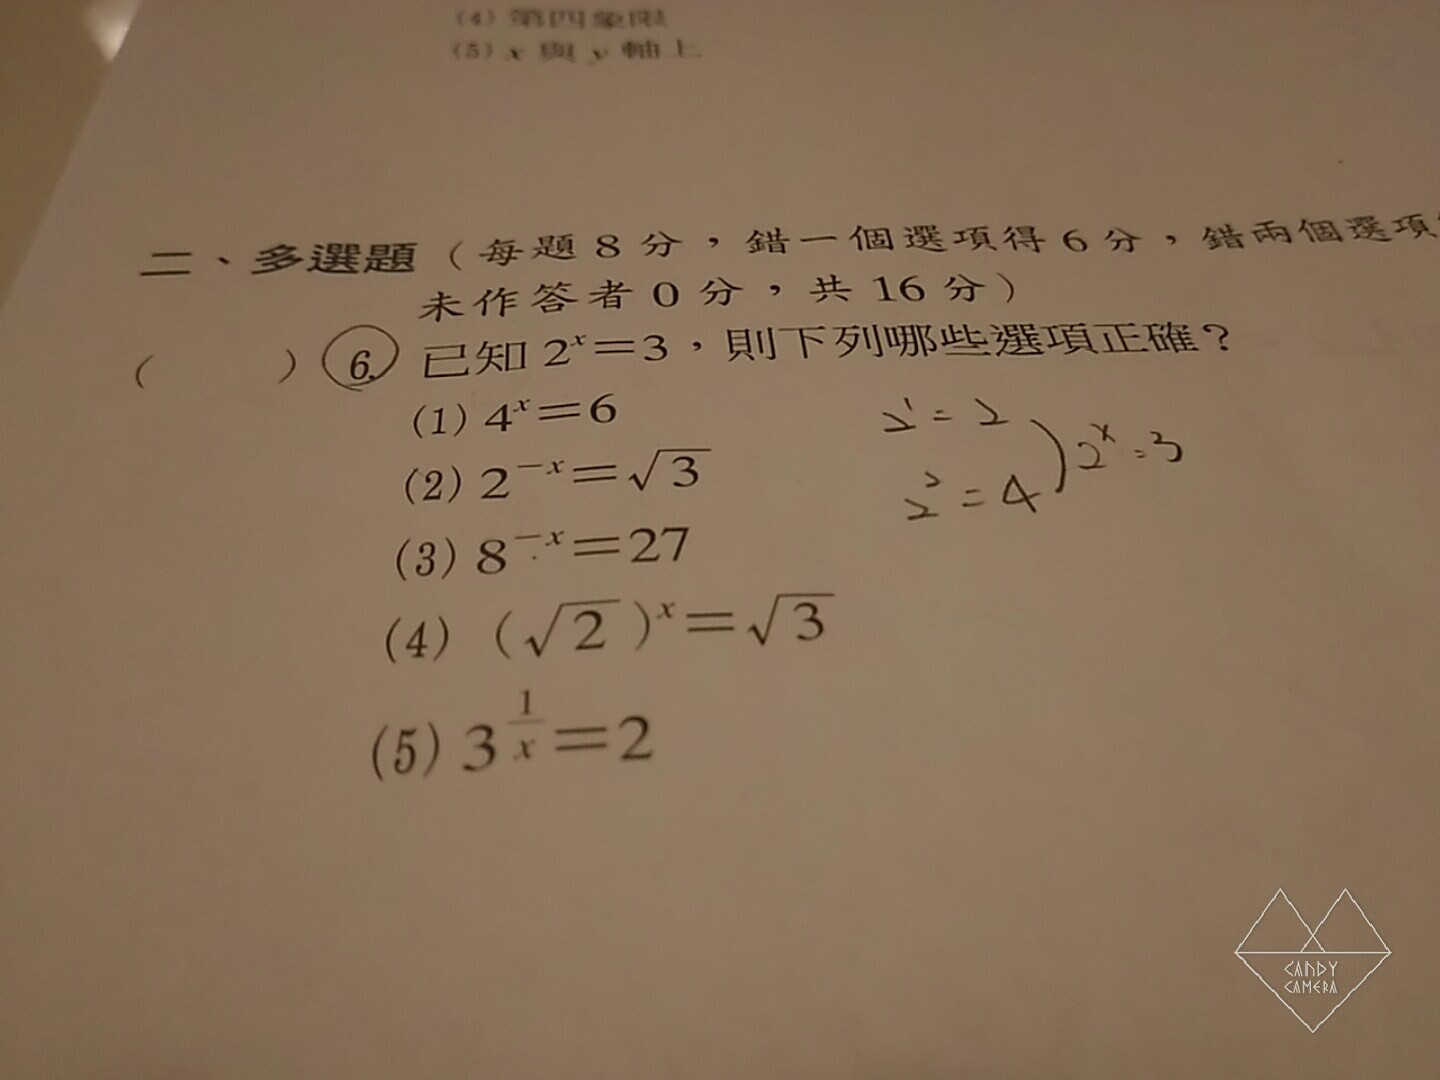 (4) 第四象限
(5) x 與 y 軸上
二、多選題（每題 8 分，錯一個選項得 6 分，錯兩個選項
未作答者 0 分，共 16 分）
(　　) 6. 已知 2ˣ=3，則下列哪些選項正確？
(1) 4ˣ=6
2¹ = 2
(2) 2⁻ˣ=√3
2² = 4 ) 2ˣ = 3
(3) 8⁻ˣ=27
(4) (√2)ˣ=√3
(5) 3^(1/x)=2
CANDY
CAMERA